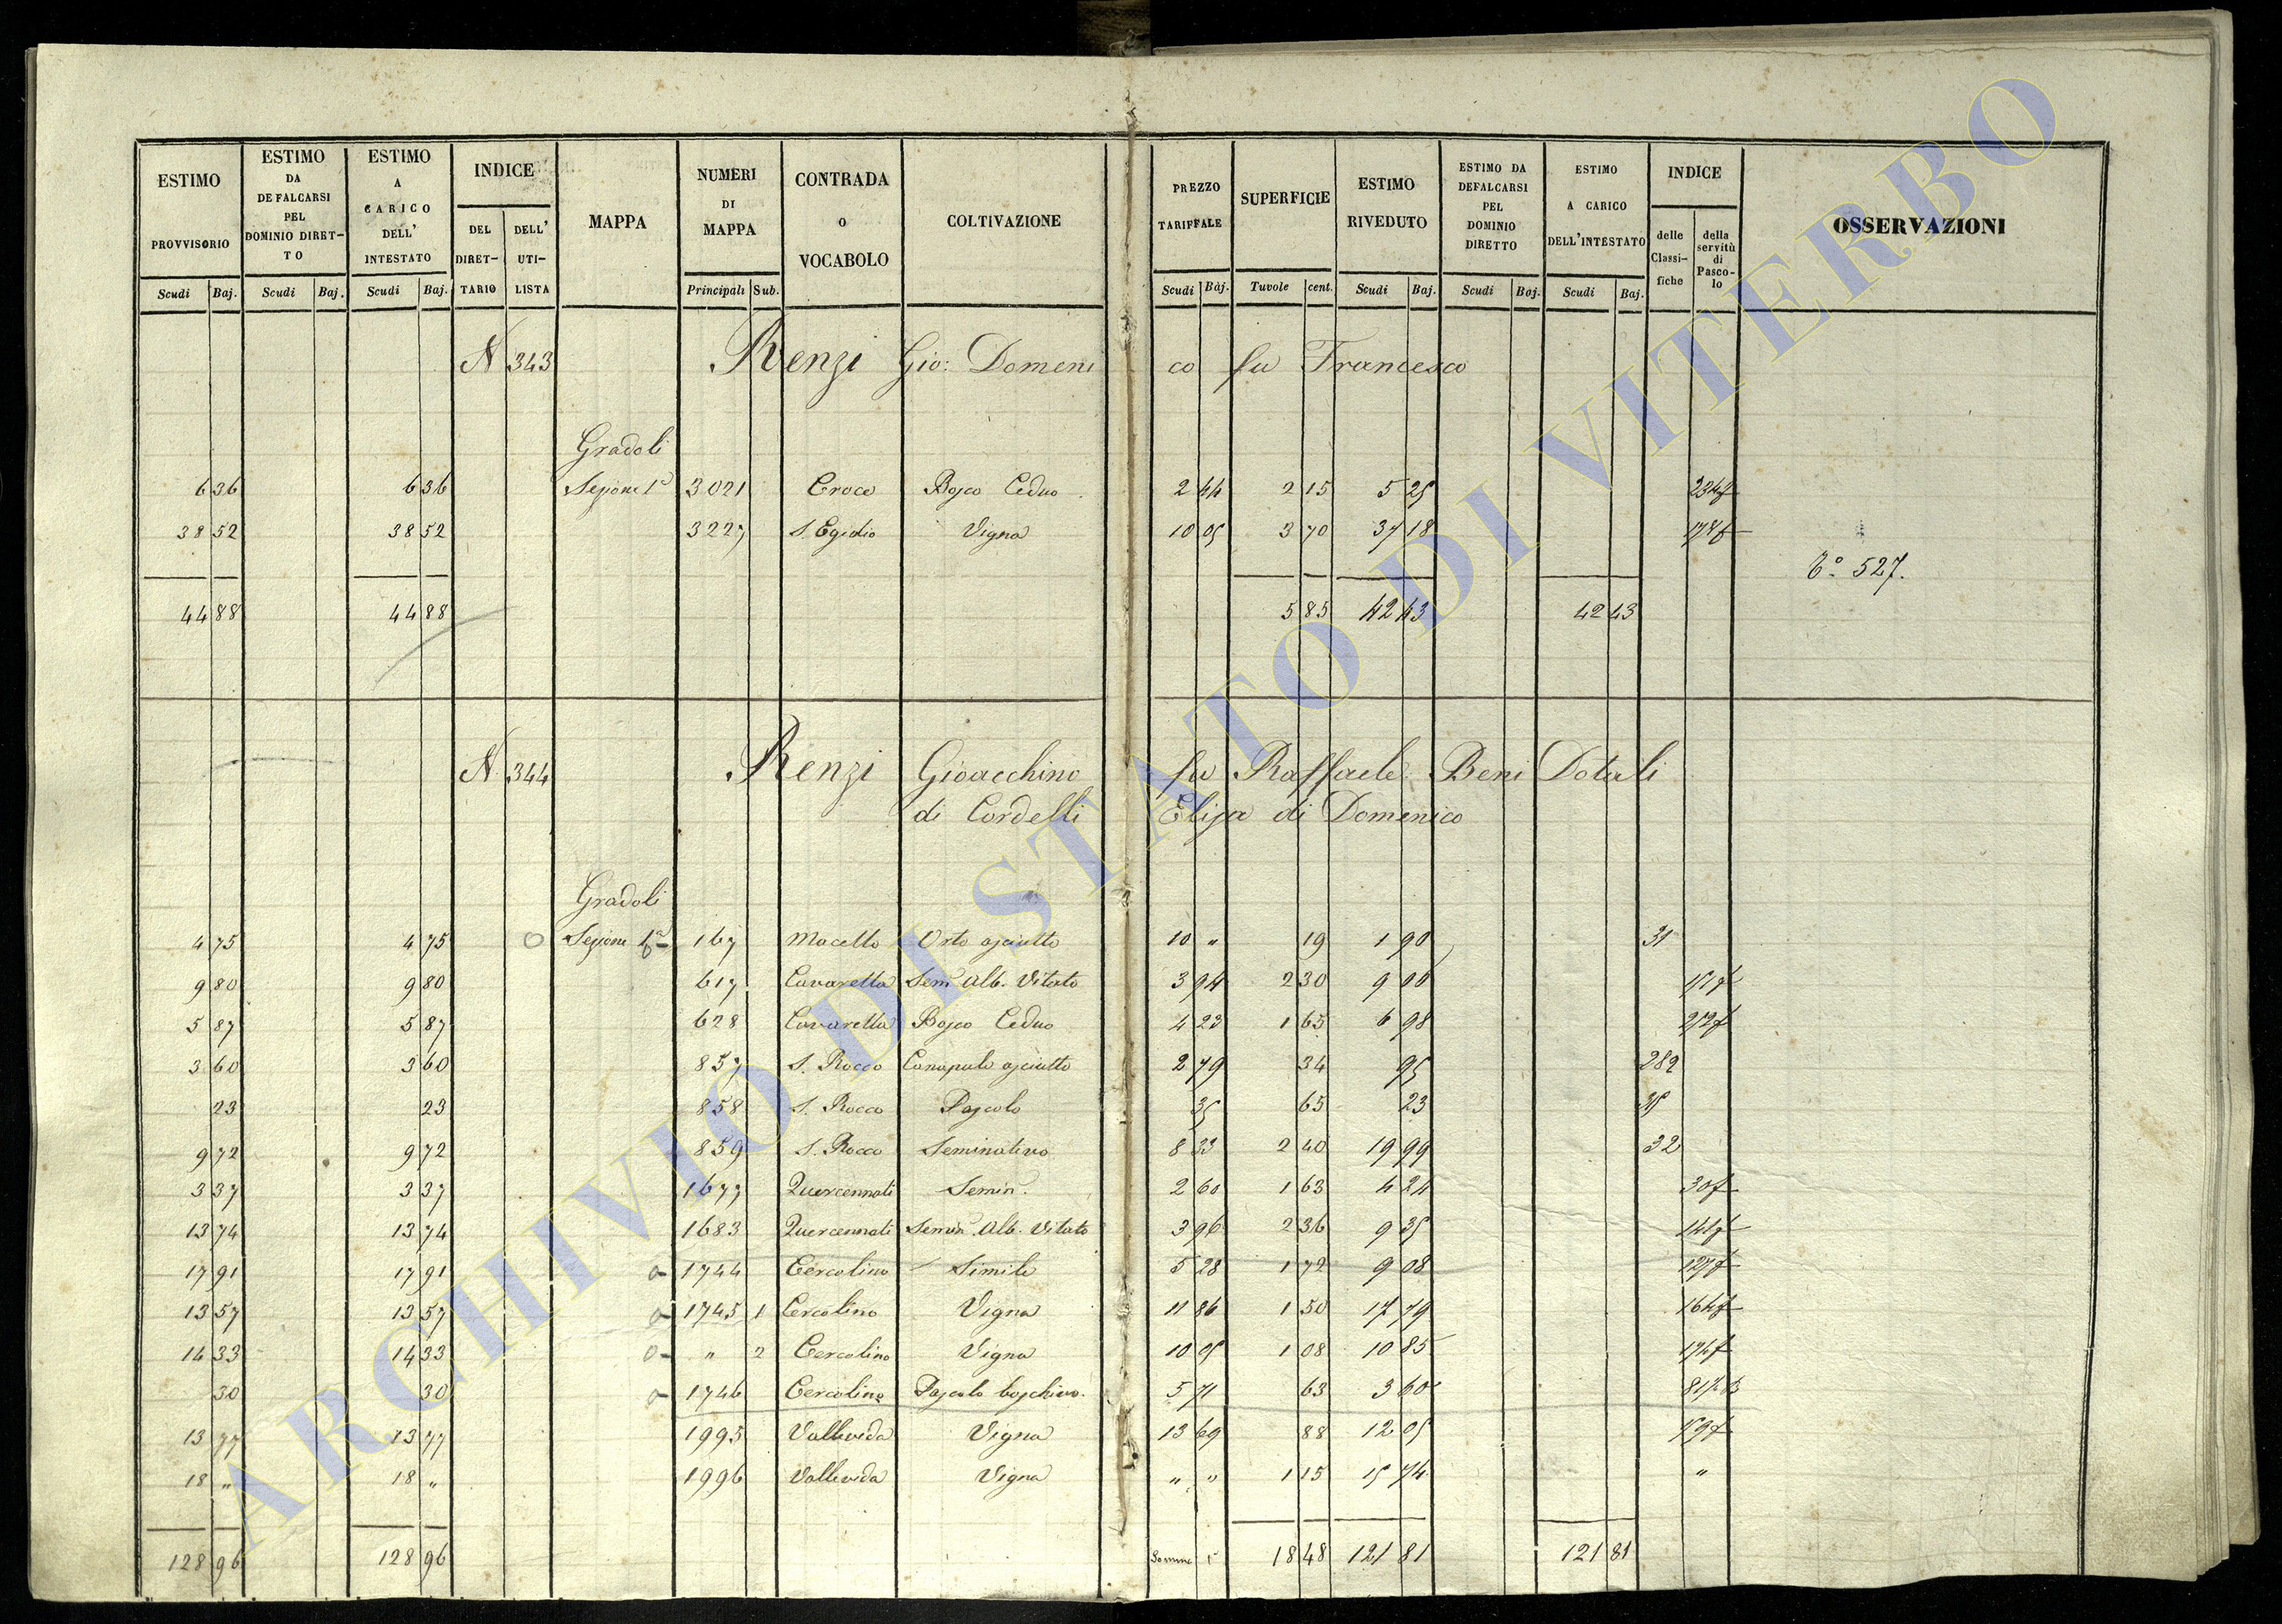 ESTIMO PROVVISORIO Scudi Baj. | ESTIMO DA DEFALCARSI PEL DOMINIO DIRET-TO Scudi Baj. | ESTIMO A CARICO DELL' INTESTATO Scudi Baj. | INDICE DEL DIRET-TARIO DELL' UTI-LISTA | MAPPA | NUMERI DI MAPPA Principali Sub. | CONTRADA o VOCABOLO | COLTIVAZIONE | PREZZO TARIFFALE Scudi Baj. | SUPERFICIE Tuvole cent. | ESTIMO RIVEDUTO Scudi Baj. | ESTIMO DA DEFALCARSI PEL DOMINIO DIRETTO Scudi Baj. | ESTIMO A CARICO DELL'INTESTATO Scudi Baj. | INDICE delle Classi-fiche della servitù di Pasco-lo | OSSERVAZIONI
N 343 Renzi Gio: Domeni co fu Francesco
Gradoli
6 36 6 36 Sezione 1ª 3021 Croce Bosco Ceduo 2 44 2 15 5 25 234f
38 52 38 52 3227 S. Egidio Vigna 10 05 3 70 37 18 178f
Tº 527.
44 88 44 88 5 85 42 43 42 43
N. 344 Renzi Gioacchino fu Raffaele Beni Dotali
di Cordelli Elisa di Domenico
Gradoli
4 75 4 75 Sezione 1ª 167 Macello Orto asciutto 10 " 19 1 90 31
9 80 9 80 617 Cavarella Sem Alb. Vitato 3 94 2 30 9 06
5 87 5 87 628 Cavarella Bosco Ceduo 4 23 1 65 6 98 212f
3 60 3 60 857 S. Rocco Canapule asciutto 2 79 34 95 282
23 23 858 S. Rocco Pascolo 35 65 23
9 72 9 72 859 S. Rocco Seminativo 8 33 2 40 19 99 32
3 37 3 37 1677 Quercennati Semin. 2 60 1 63 4 24 30f
13 74 13 74 1683 Quercennati Semin. Alb. Vitato 3 96 2 36 9 35 141f
17 91 17 91 1744 Cercolino Simile 5 28 1 72 9 08 127f
13 57 13 57 1745 1 Cercolino Vigna 11 86 1 50 17 79 164f
14 33 14 33 " 2 Cercolino Vigna 10 05 1 08 10 85 174f
30 30 1746 Cercolino Pascolo boschivo. 5 71 63 3 60
13 77 13 77 1995 Vallevida Vigna 13 69 88 12 05 159f
18 " 18 " 1996 Vallevida Vigna " " 1 15 15 74 "
128 96 128 96 Somme 18 48 121 81 121 81
ARCHIVIO DI STATO DI VITERBO